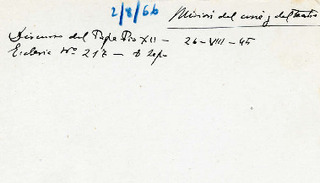 2/8/66
Misión del cine y del teatro
Discurso del Papa Pio XII - 26-VIII-45
Ecclesia Nº 217 -